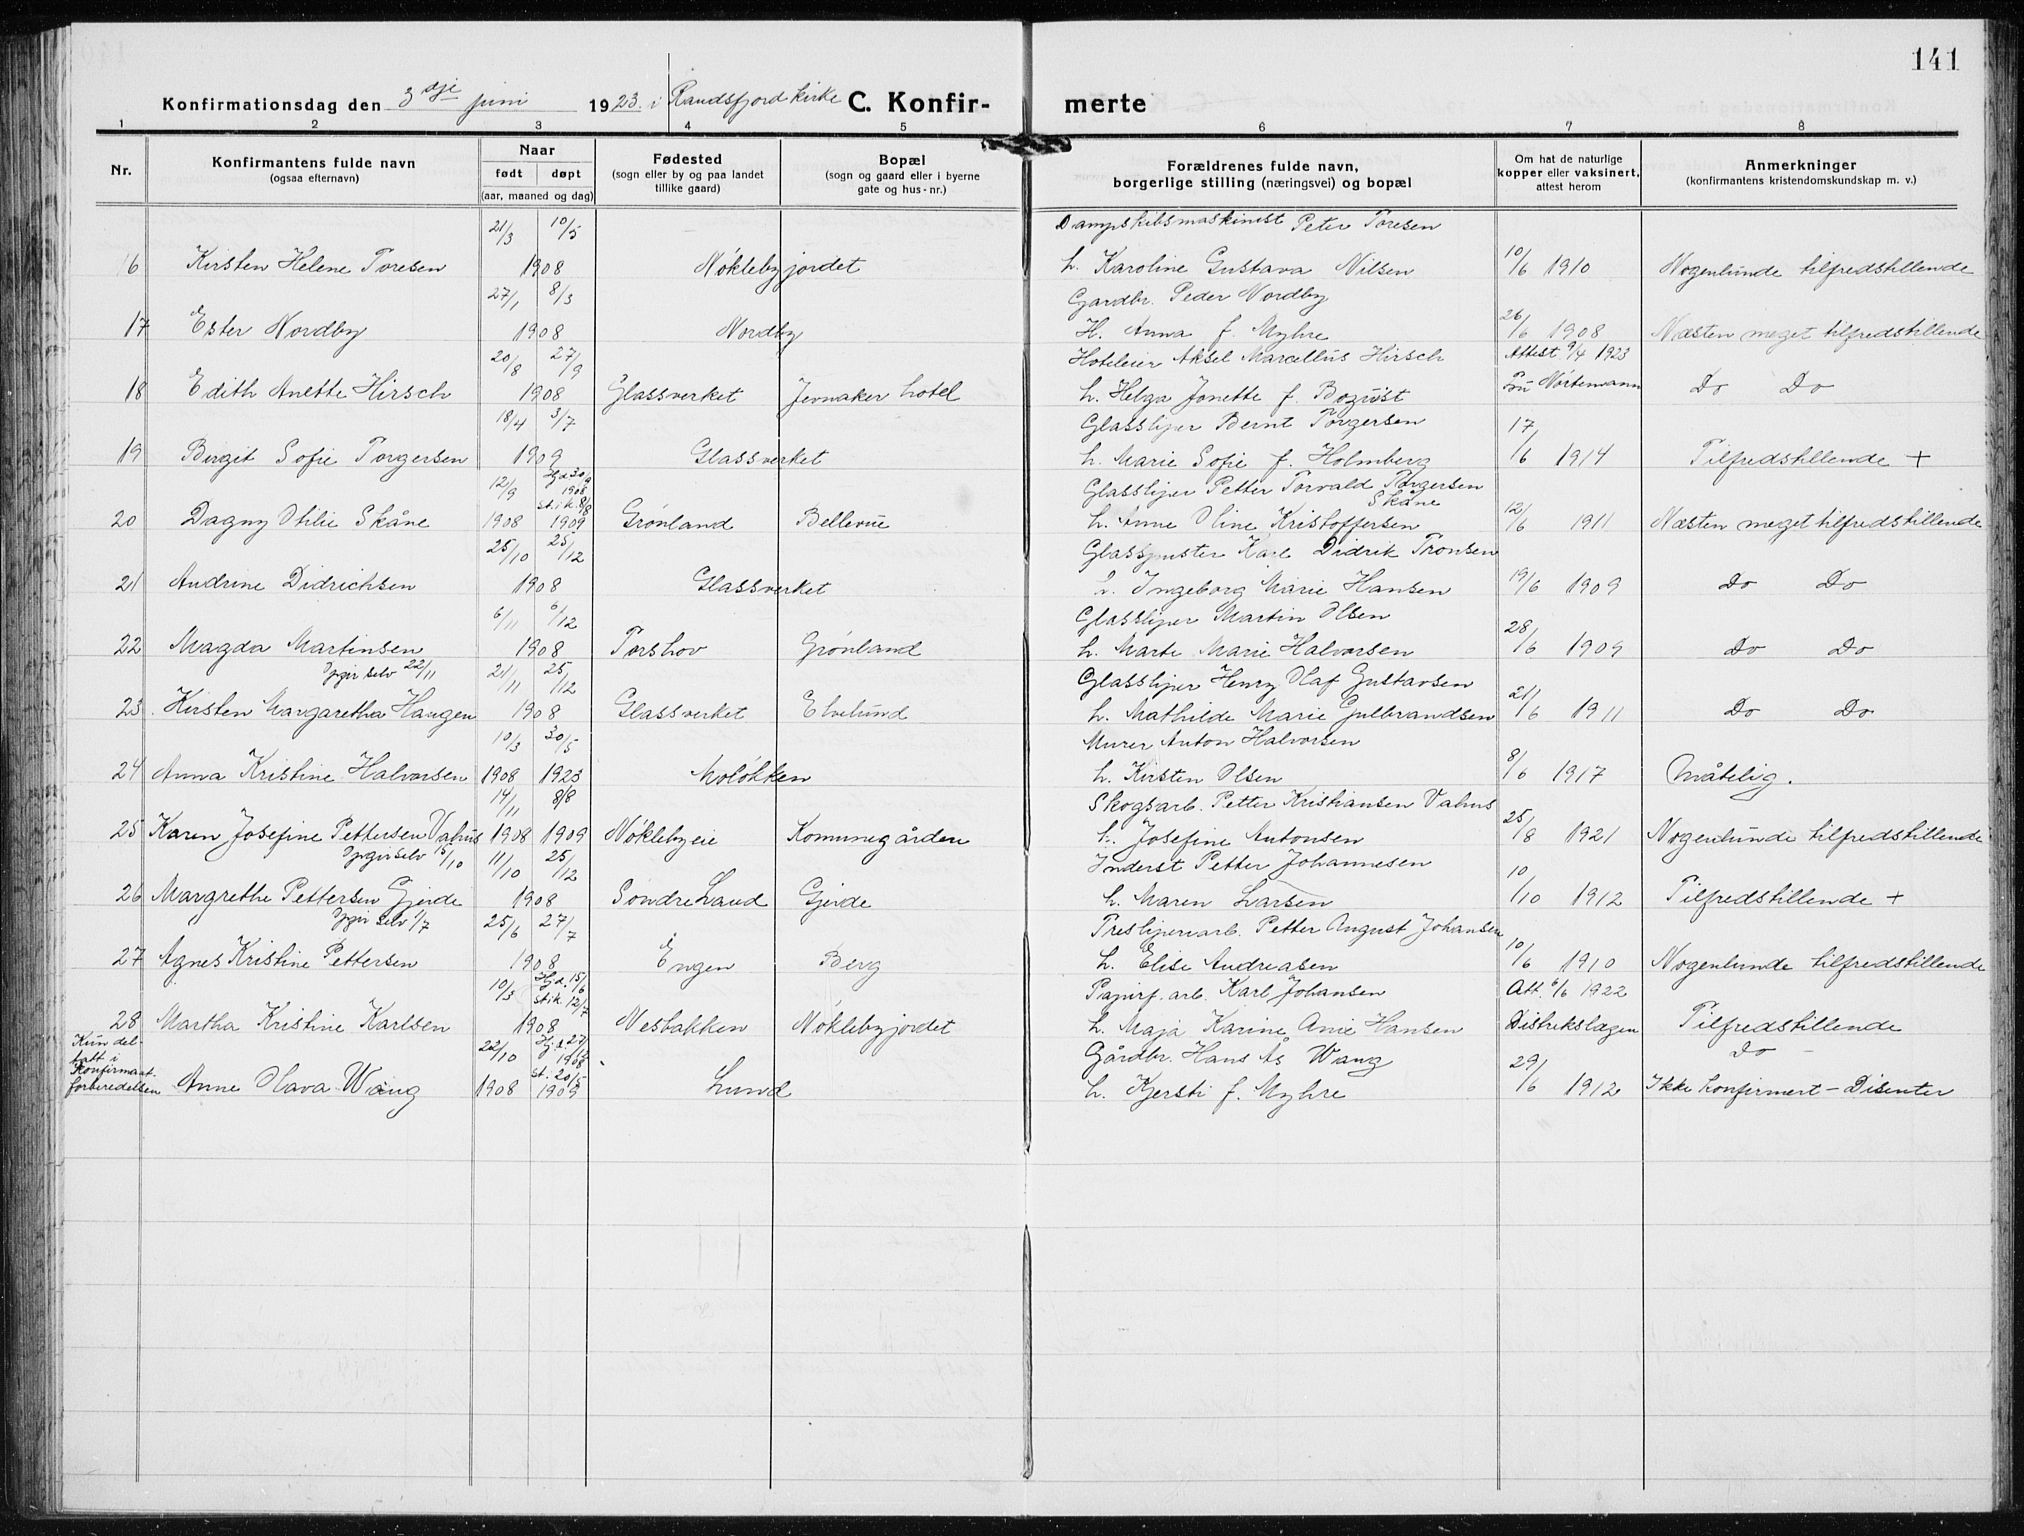 141
Konfirmationsdag den 3dje juni 1923. i Randsfjord kirke C. Konfir- merte
1 2 3 4 5 6 7 8
Nr. Konfirmantens fulde navn (ogsaa efternavn) Naar født døpt (aar, maaned og dag) Fødested (sogn eller by og paa landet tillike gaard) Bopæl (sogn og gaard eller i byerne gate og hus-nr.) Forældrenes fulde navn, borgerlige stilling (næringsvei) og bopæl Om hat de naturlige kopper eller vaksinert, attest herom Anmerkninger (konfirmantens kristendomskundskap m. v.)
21/3 10/5 Dampskibsmaskinist Peter Toresen
16 Kirsten Helene Toresen 1908 Nøklebyjordet h. Karoline Gustava Nilsen 10/6 1910 Nogenlunde tilfredstillende
27/1 8/3 Gardbr. Peder Nordby
17 Ester Nordby 1908 Nordby H. Anna f. Myhre 26/6 1908 Næsten meget tilfredstillende
20/8 27/9 Hoteleier Aksel Marcellus Hirsch Attest 9/4 1923
18 Edith Anette Hirsch 1908 Glassverket Jevnaker hotel h. Helga Jonette f. Boqvist Fru Nørtemann Do Do
18/4 3/7 Glassliper Bernt Torgersen
19 Birgit Sofie Torgersen 1909 Glassverket h. Marie Sofie f. Holmberg 17/6 1914 Tilfredstillende +
12/9 Hjd 30/9 1908 st. i k. 8/8 Glassliper Petter Torvald Torgersen Skåne
20 Dagny Otilie Skåne 1908 1909 Grønland Bellevue h. Anne Oline Kristoffersen 12/6 1911 Næsten meget tilfredstillende
25/10 25/12 Glasspuster Karl Didrik Tronsen
21 Andrine Didrichsen 1908 Glassverket h. Ingeborg Marie Hansen 19/6 1909 Do Do
6/11 6/12 Glassliper Martin Olsen
22 Magda Martinsen 1908 Torshov Grønland h. Marte Marie Halvorsen 28/6 1909 Do Do
Opgir selv 22/11 21/11 25/12 Glassliper Henry Olaf Gustavsen
23 Kirsten Margaretha Haugen 1908 Glassverket Elvelund h. Mathilde Marie Gulbrandsen 21/6 1911 Do Do
10/3 30/5 Murer Anton Halvorsen
24 Anna Kristine Halvorsen 1908 1923 Moløkken h. Kirsten Olsen 8/6 1917 Måtelig.
14/11 8/8 Skogsarb. Petter Kristiansen Vahus
25 Karen Josefine Pettersen Vahus 1908 1909 Nøklebyeie Komunegården h. Josefine Antonsen 25/8 1921 Nogenlunde tilfredstillende
Opgir selv 5/10 11/10 25/12 Inderst Petter Johannesen
26 Margrethe Pettersen Gjerde 1908 Søndre Land Gjerde h. Maren Larsen 10/10 1912 Tilfredstillende +
Opgir selv 1/7 25/6 27/7 Tresliperiarb. Petter August Johansen
27 Agnes Kristine Pettersen 1908 Engen Berg h. Elise Andreasen 10/6 1910 Nogenlunde tilfredstillende
10/3 Hjd. 15/6 st i k. 12/7 Papirf. arb. Karl Johansen Att. 6/6 1922
28 Martha Kristine Karlsen 1908 Nesbakken Nøklebyjordet h. Maja Karine Anie Hansen Distrikslægen Tilfredstillende
Kun del- 22/10 Hjd. 27/12 1908 Gårdbr. Hans Ås Wang Do -
tatt i
Konfirmant-
forberedelsen Anne Olava Wang 1908 st. 20/5 1909 Lund h. Kjersti f. Myhre 29/6 1912 Ikke konfirmert - Disenter